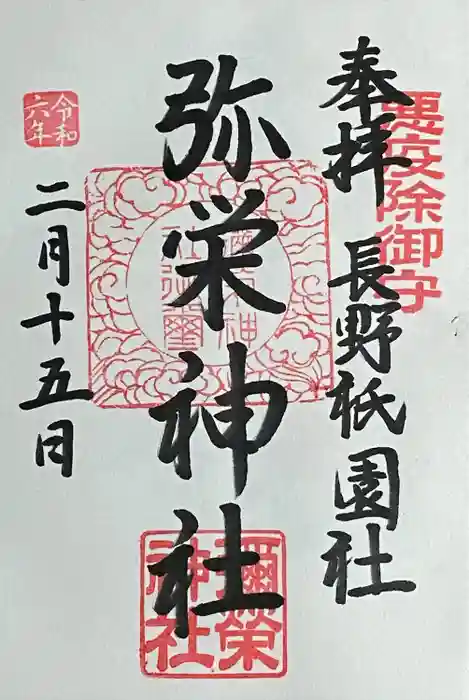 奉拝 長野祇園社
悪疫除御守
弥栄神社
彌榮神社
令和六年
二月十五日